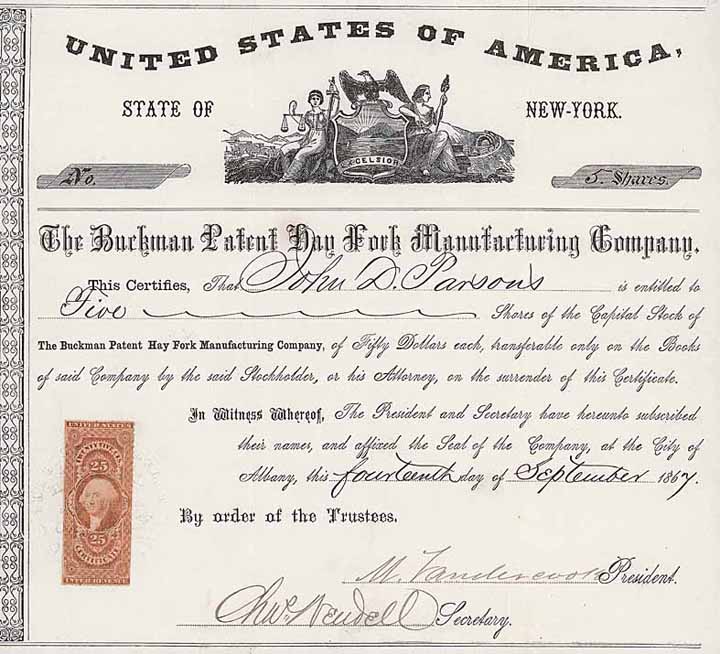 UNITED STATES OF AMERICA,
STATE OF NEW-YORK.
EXCELSIOR
No. 5 Shares.
The Buckman Patent Hay Fork Manufacturing Company.
This Certifies, That John D. Parsons is entitled to
Five Shares of the Capital Stock of
The Buckman Patent Hay Fork Manufacturing Company, of Fifty Dollars each, transferable only on the Books
of said Company by the said Stockholder, or his Attorney, on the surrender of this Certificate.
In Witness Whereof, The President and Secretary have hereunto subscribed
their names, and affixed the Seal of the Company, at the City of
Albany, this fourteenth day of September 1867.
By order of the Trustees.
UNITED STATES
25 25
25 25
CERTIFICATE
INTER. REVENUE
M. Vandercook President.
Wendell Secretary.